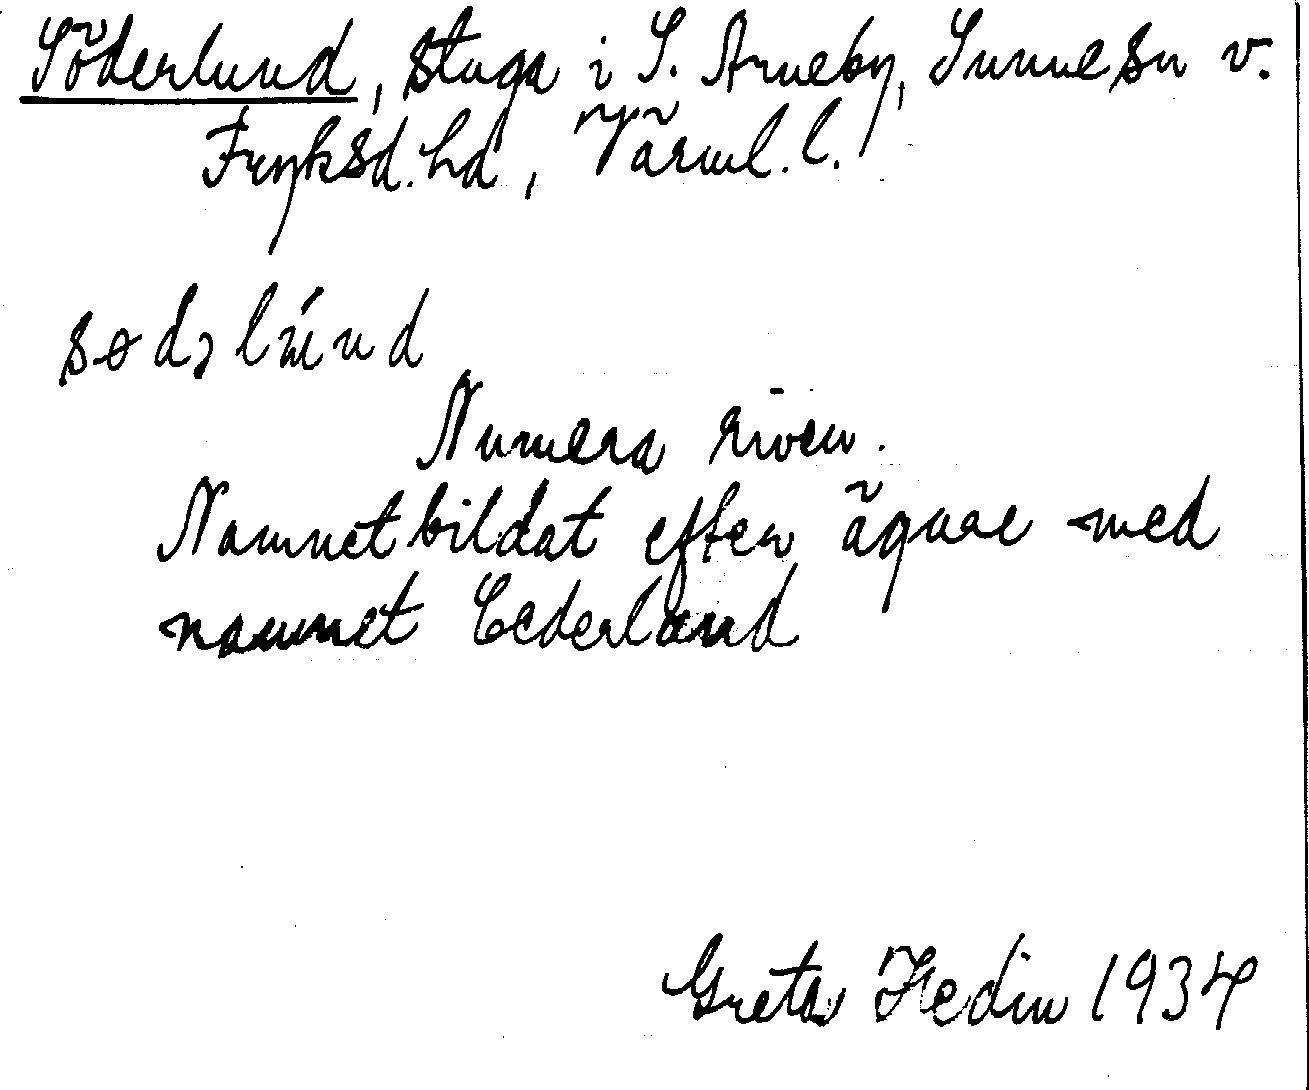 Söderlund, stuga i S. Arneby, Sunne sn v.
Fryksd. hd, Värml. l.
Numera riven.
Namnet bildat efter ägare med
namnet Cederlund
Greta Hedin 1934